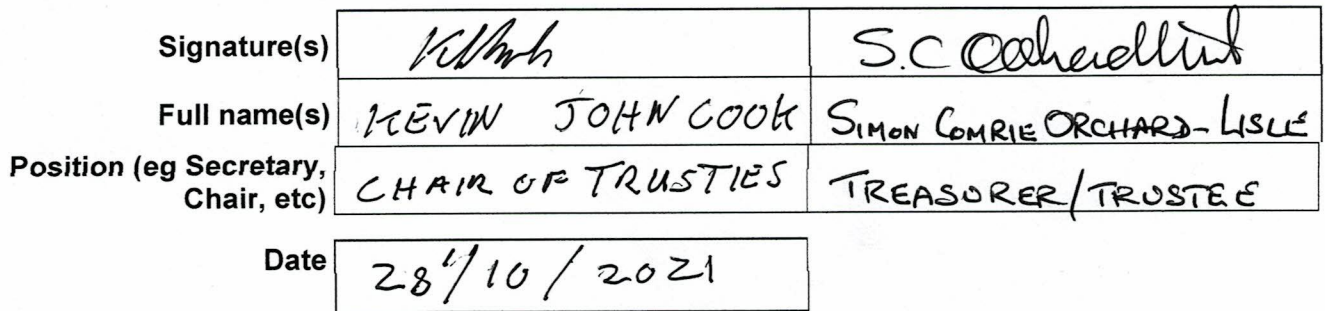 Signature(s) S.C Orchard-Lisle
Full name(s) KEVIN JOHN COOK SIMON COMRIE ORCHARD-LISLE
Position (eg Secretary, Chair, etc) CHAIR OF TRUSTIES TREASURER/TRUSTEE
Date 28/10/2021